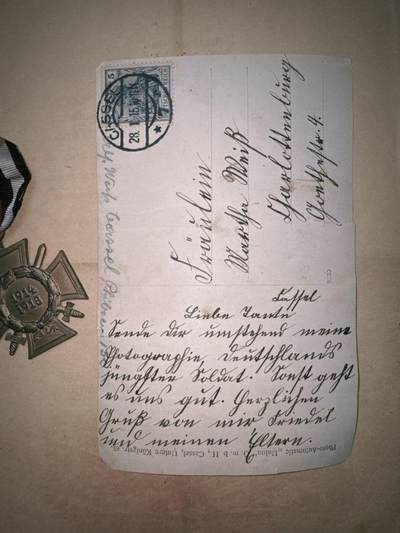 CASSEL 5
28. 15.
Fräulein
Martha Weiß
Charlottenburg
Goethestr.
Cassel
Liebe Tante
Sende dir umstehend meine
Photographie, Deutschlands
jüngster Soldat. Sonst geht
es uns gut. Herzlichen
Gruß von mir Friedel
und meinen Eltern.
Photo-Automatic „Union" G. m. b. H., Cassel, Untere Königstr.
1914
1918